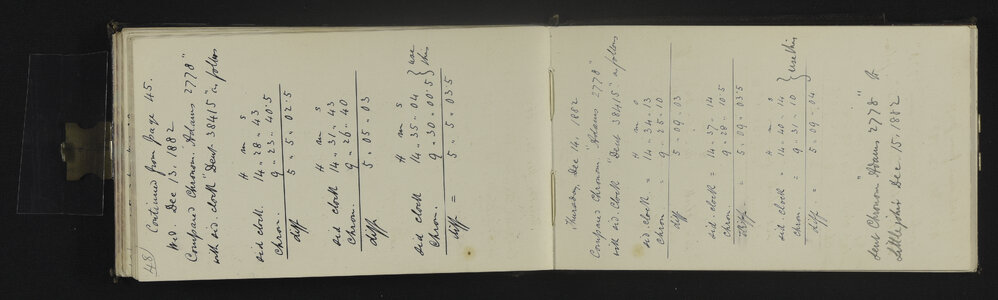 48)
Continued from page 45.
W.d Dec 13. 1882
Compared Chronom. "Adams 2778"
with sid. clock "Dent 38415" as follows
H m s
sid clock. 14 .. 28 .. 43
Chron. 9 .. 23 .. 40.5
diff 5 .. 5 .. 02.5
H m s
sid clock 14 .. 31 .. 43
Chron. 9 .. 26 .. 40
diff 5 .. 05 .. 03
H m s
sid clock 14 .. 35 .. 04 } use
Chron. 9 .. 30 .. 00.5 } this
diff = 5 .. 5 .. 03.5
Thursday, Dec 14. 1882
Compared Chronom. "Adams 2778"
with sid. clock "Dent 38415" as follows
H m s
sid. clock = 14 .. 34 .. 13
Chron = 9 .. 25 .. 10
diff 5 .. 09 .. 03
sid. clock = 14 .. 37 .. 14
Chron. = 9 .. 28 .. 10.5
diff. = 5 .. 09 .. 03.5
H m s
sid. clock = 14 .. 40 .. 14 } use this
Chron. = 9 .. 31 .. 10
diff. = 5 .. 09 .. 04
Sent Chronom "Adams 2778" to
Dec 15. 1882